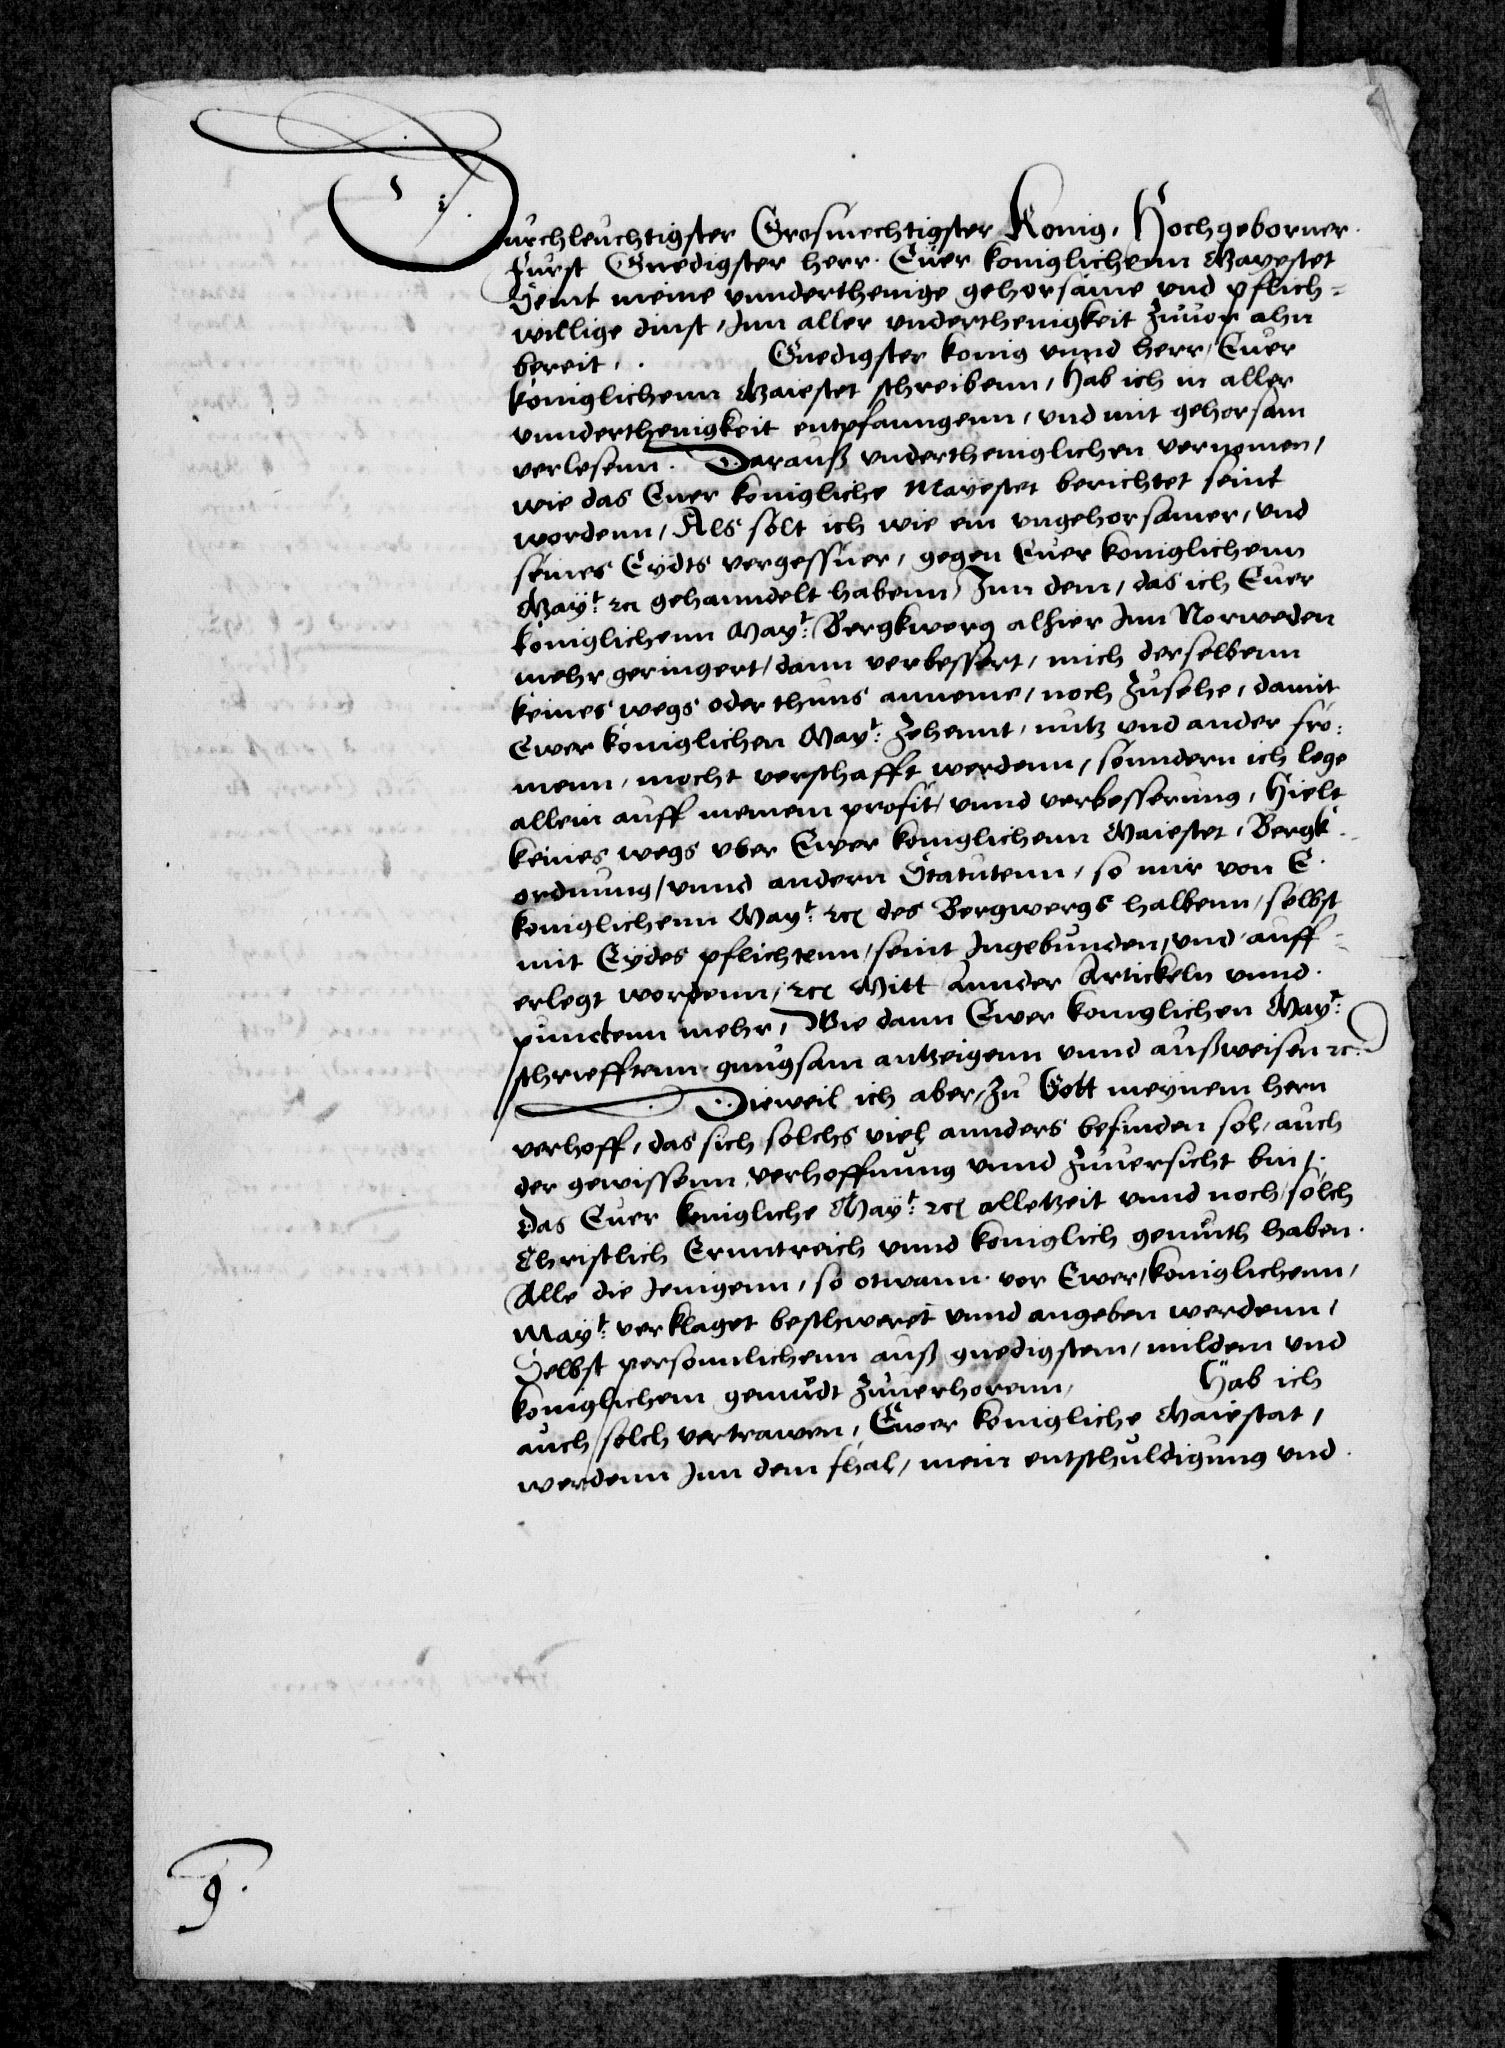 Durchleuchtigster Grosmechtigster Konig, Hochgeborner.
Furst Gnedigster herr. Euer koniglichenn Mayestet
Seint meine vnnderthenige gehorsame vnd pflich=
willige dinst, Inn aller vnderthenigkeit zuuor ahn
bereit, . Gnedigster konig vnnd herr, Euer
koniglichenn Maiestet schreibenn, hab ich in aller
vnnderthenigkeit entpfanngenn, vnd mit gehorsam
verlesenn. Darauß vndertheniglichen vernomen,
wie das Euer konigliche Mayestet berichtet seint
wordenn, Als solt ich wie ein vngehorsamer, vnd
seines Eydts vergessner, gegen Euer koniglichenn
Mayt: rc gehanndelt habenn, Inn dem, das ich Euer
koniglichenn Mayt: Bergkwerg alhier Inn Norweden
mehr geringert, dann verbessert, mich derselbenn
keines wegs oder thuns anneme, noch zusehe, damit
Ewer koniglichen Mayt: zehennt, nutz vnd ander fro:
menn, mocht verschafft werdenn, sonndern ich lege
allein auff meinem profit, vnnd verbesserung, hielt
keines wegs vber Ewer koniglichenn Maiestet, Bergk
ordnung, vnnd andern Statutenn, so mir von E.
koniglichenn Mayt: rc des Bergwergs halbenn, selbst
mit Eydes pflichtenn, seint Ingebunden, vnd auff
erlegt wordenn, rc Mitt annder Artickeln vnnd.
punctenn mehr, Wie dann Ewer koniglichen Mayt:
schriefftenn. gnugsam antzeigenn vnnd außweisen rc.
Dieweil ich aber, zu Gott meynem hern
verhoff, das sich solchs viel annders befinden sol, auch
der gewissenn verhoffnung vnnd zuuersicht bin,
das Euer konigliche Mayt: rc alletzeit vnnd noch, solch
Christlich Ernntreich vnnd koniglich gemuth haben.
Alle die Jenigenn, so otwann. vor Ewer, koniglichenn,
Mayt: verklaget beschweret vnnd angeben werdenn,
Selbst personnlichenn auß gnedigstem, mildem vnd
koniglichem gemudt zuuerhorenn, Hab ich
auch solch vertrawen, Ewer konigliche Maiestat,
werdenn Inn dem fhal, mein entschuldigung vnd.
9.